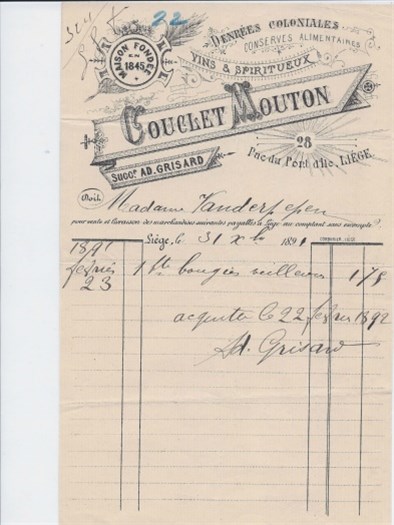 22
DENRÉES COLONIALES
CONSERVES ALIMENTAIRES
VINS & SPIRITUEUX
MAISON FONDÉE
EN
1845
COUCLET MOUTON
SUCCR AD. GRISARD
28
Rue du Pont d'Ile, LIÉGE.
Doit
Madame Vanderpepen
pour vente et livraison des marchandises suivantes payables à Liége au comptant sans escompte.
Liége, le 31 Xbre 1891
1891
fevrier 23 1 bte bougies veilleuses 1 75
acquitté le 22 fevrier 1892
Ad. Grisard